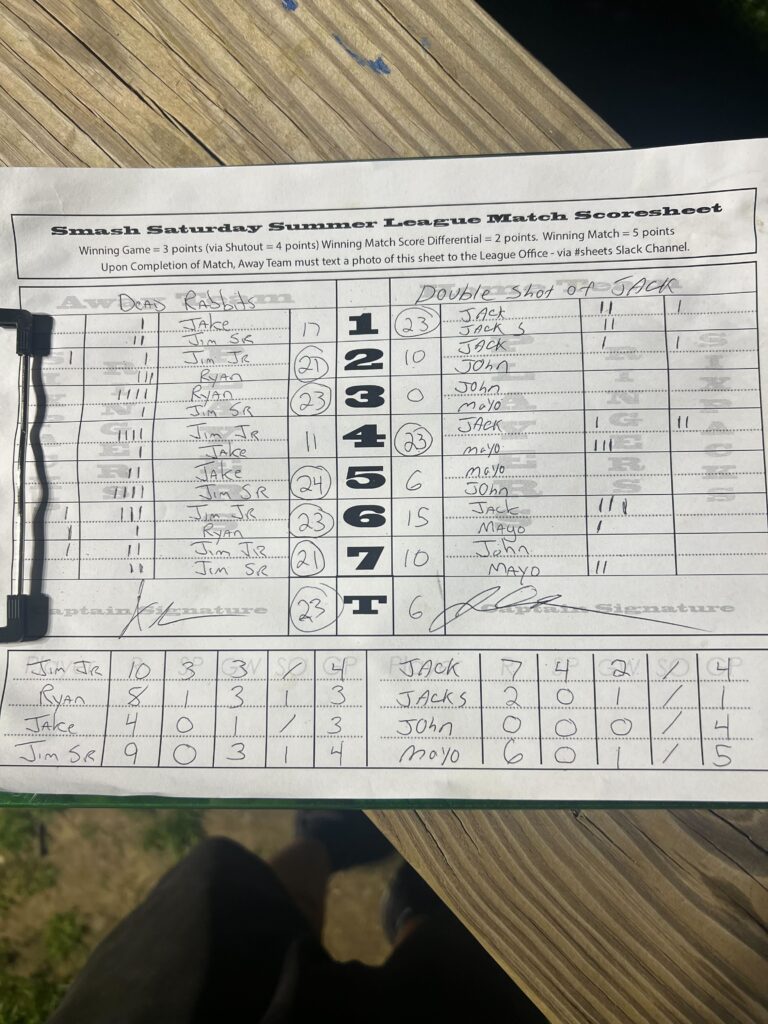 Smash Saturday Summer League Match Scoresheet
Winning Game = 3 points (via Shutout = 4 points) Winning Match Score Differential = 2 points. Winning Match = 5 points
Upon Completion of Match, Away Team must text a photo of this sheet to the League Office - via #sheets Slack Channel.
Away Team Dead Rabbits Home Team Double Shot of JACK
I JAKE 17 1 23 JACK II I
II Jim SR JACK S II
I I Jim JR 21 2 10 JACK I I
III RYAN JOHn
IIII RYAN 23 3 0 John
I Jim SR mayo
IIII Jim JR 11 4 23 JACK I II
I JAKE mayo III
II JAKE 24 5 6 mayo
IIII Jim SR JOHn
I III Jim JR 23 6 15 JACK III
I I RYAN MAYO I
I II Jim JR 21 7 10 John
II Jim SR MAYO II
Captain Signature 23 T 6 Captain Signature
Jim JR 10 3 3 / 4 JACK 7 4 2 / 4
RYAN 8 1 3 1 3 JACKS 2 0 1 / 1
JAKE 4 0 1 / 3 JOHn 0 0 0 / 4
Jim SR 9 0 3 1 4 mayo 6 0 1 / 5